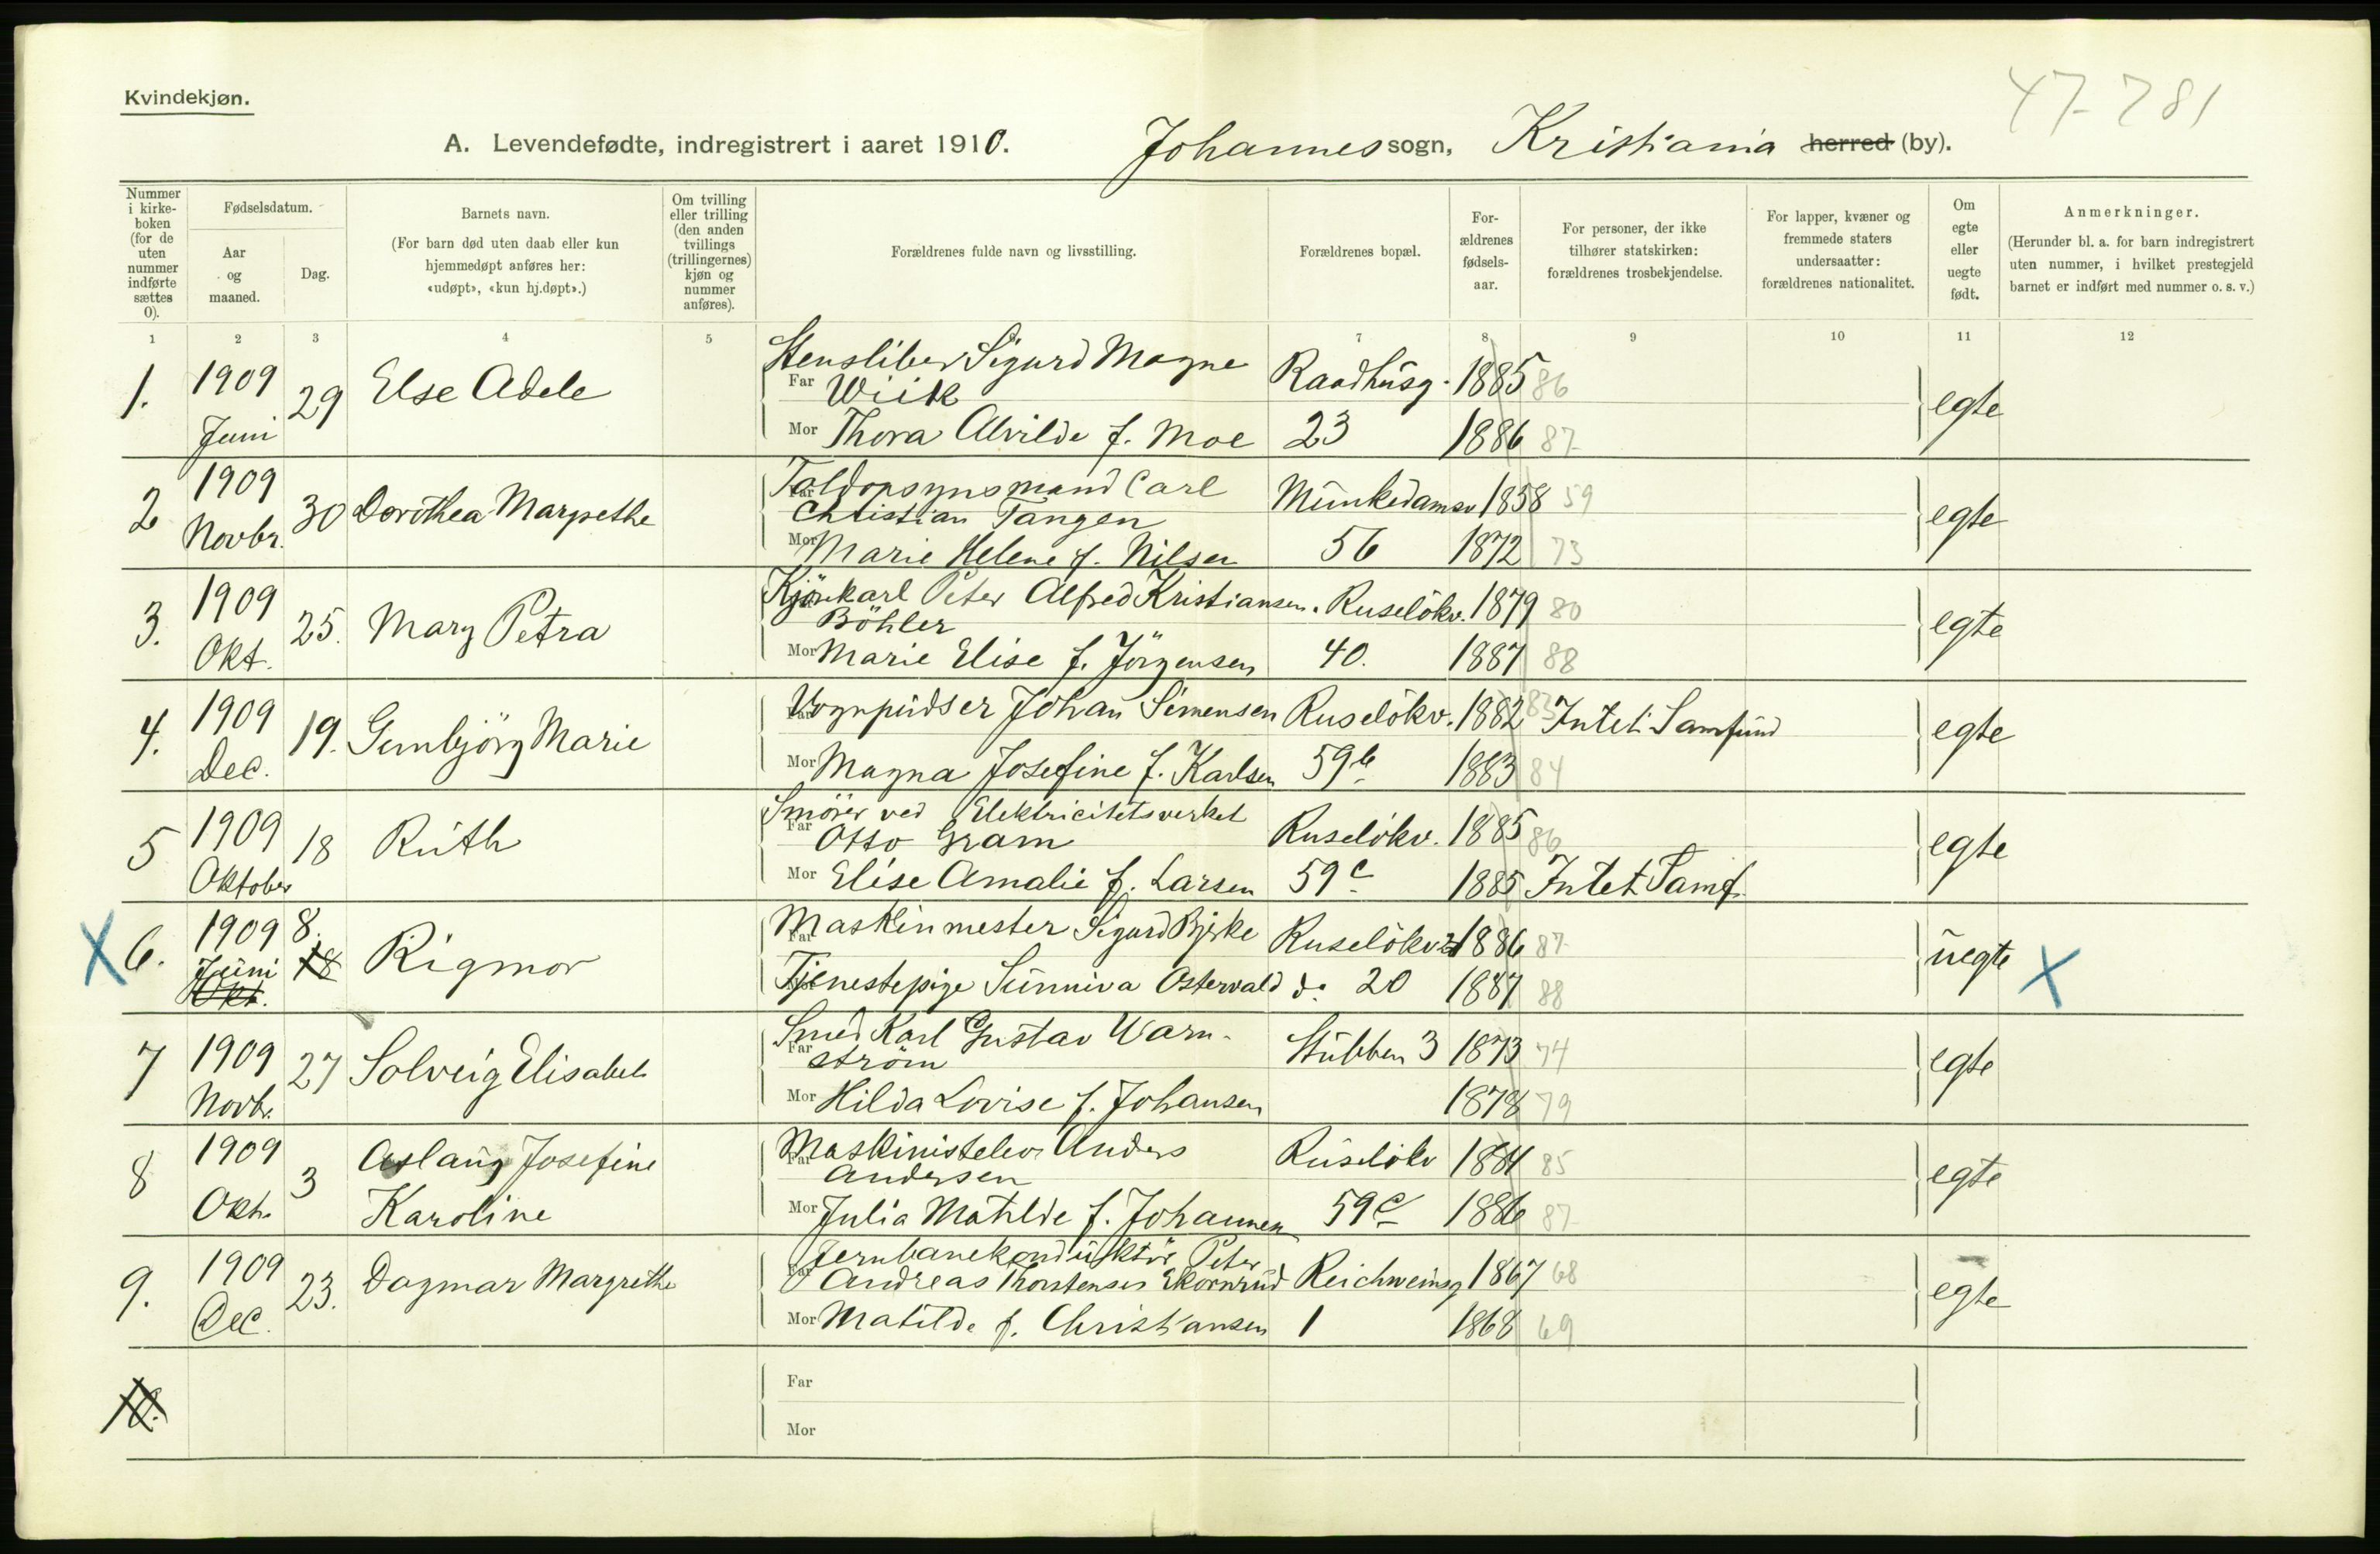 Kvindekjøn.
47-781
A. Levendefødte, indregistrert i aaret 1910. Johannes sogn, Kristiania herred (by).
Nummer i kirkeboken (for de uten nummer indførte sættes 0).
Fødselsdatum.
Aar og maaned.
Dag.
Barnets navn.
(For barn død uten daab eller kun hjemmedøpt anføres her: «udøpt», «kun hj.døpt».)
Om tvilling eller trilling (den anden tvillings (trillingernes) kjøn og nummer anføres).
Forældrenes fulde navn og livsstilling.
Forældrenes bopæl.
Forældrenes fødselsaar.
For personer, der ikke tilhører statskirken: forældrenes trosbekjendelse.
For lapper, kvæner og fremmede staters undersaatter: forældrenes nationalitet.
Om egte eller uegte født.
Anmerkninger.
(Herunder bl. a. for barn indregistrert uten nummer, i hvilket prestegjeld barnet er indført med nummer o. s. v.)
1 2 3 4 5 6 7 8 9 10 11 12
1. 1909 Juni 29 Else Adele
Stensliber Sigurd Magne
Far Wiik Raadhusg. 1885 86 egte
Mor Thora Alvilde f. Moe 23 1886 87
2 1909 Novbr. 30 Dorothea Margrethe
Toldopsynsmand Carl
Far Christian Tangen Munkedamsv 1858 59 egte
Mor Marie Helene f. Nilsen 56 1872 73
3. 1909 Okt. 25. Mary Petra
Kjörekarl Peter Alfred Kristiansen. Ruselökv. 1879 80 egte
Böhler
Mor Marie Elise f. Jörgensen 40. 1887 88
4. 1909 Dec. 19. Gunbjörg Marie
Far Vognpudser Johan Simensen Ruselökv. 1882 83 Intet Samfund egte
Mor Magna Josefine f. Karlsen 59 b 1883 84
5 1909 Oktober 18 Ruth
Smörer ved Elektricitetsverket
Far Otto Gram Ruselökv. 1885 86 egte
Mor Elise Amalie f. Larsen 59 c 1885 Intet Samf.
X 6. 1909 Juni Okt. 8. 18 Rigmor
Far Maskinmester Sigurd Bjerke Ruselökv 1886 87 uegte X
Tjenestepige Sunniva Ostervald do 20 1887 88
7 1909 Novbr. 27 Solveig Elisabet
Smed Karl Gustav Warn-
Far ström Stubben 3 1873 74 egte
Mor Hilda Lovise f. Johansen 1878 79
8 1909 Okt. 3 Aslaug Josefine Karoline
Maskinistelev Anders
Far Andersen Ruselökv 1884 85 egte
Mor Julia Matilde f. Johannesen 59 c 1886 87
9. 1909 Dec. 23. Dagmar Margrethe
Jernbanekonduktör Peter
Far Andreas Thorstensen Ekornrud Reichweinsg 1867 68 egte
Mor Matilde f. Christiansen 1 1868 69
10.
Far
Mor